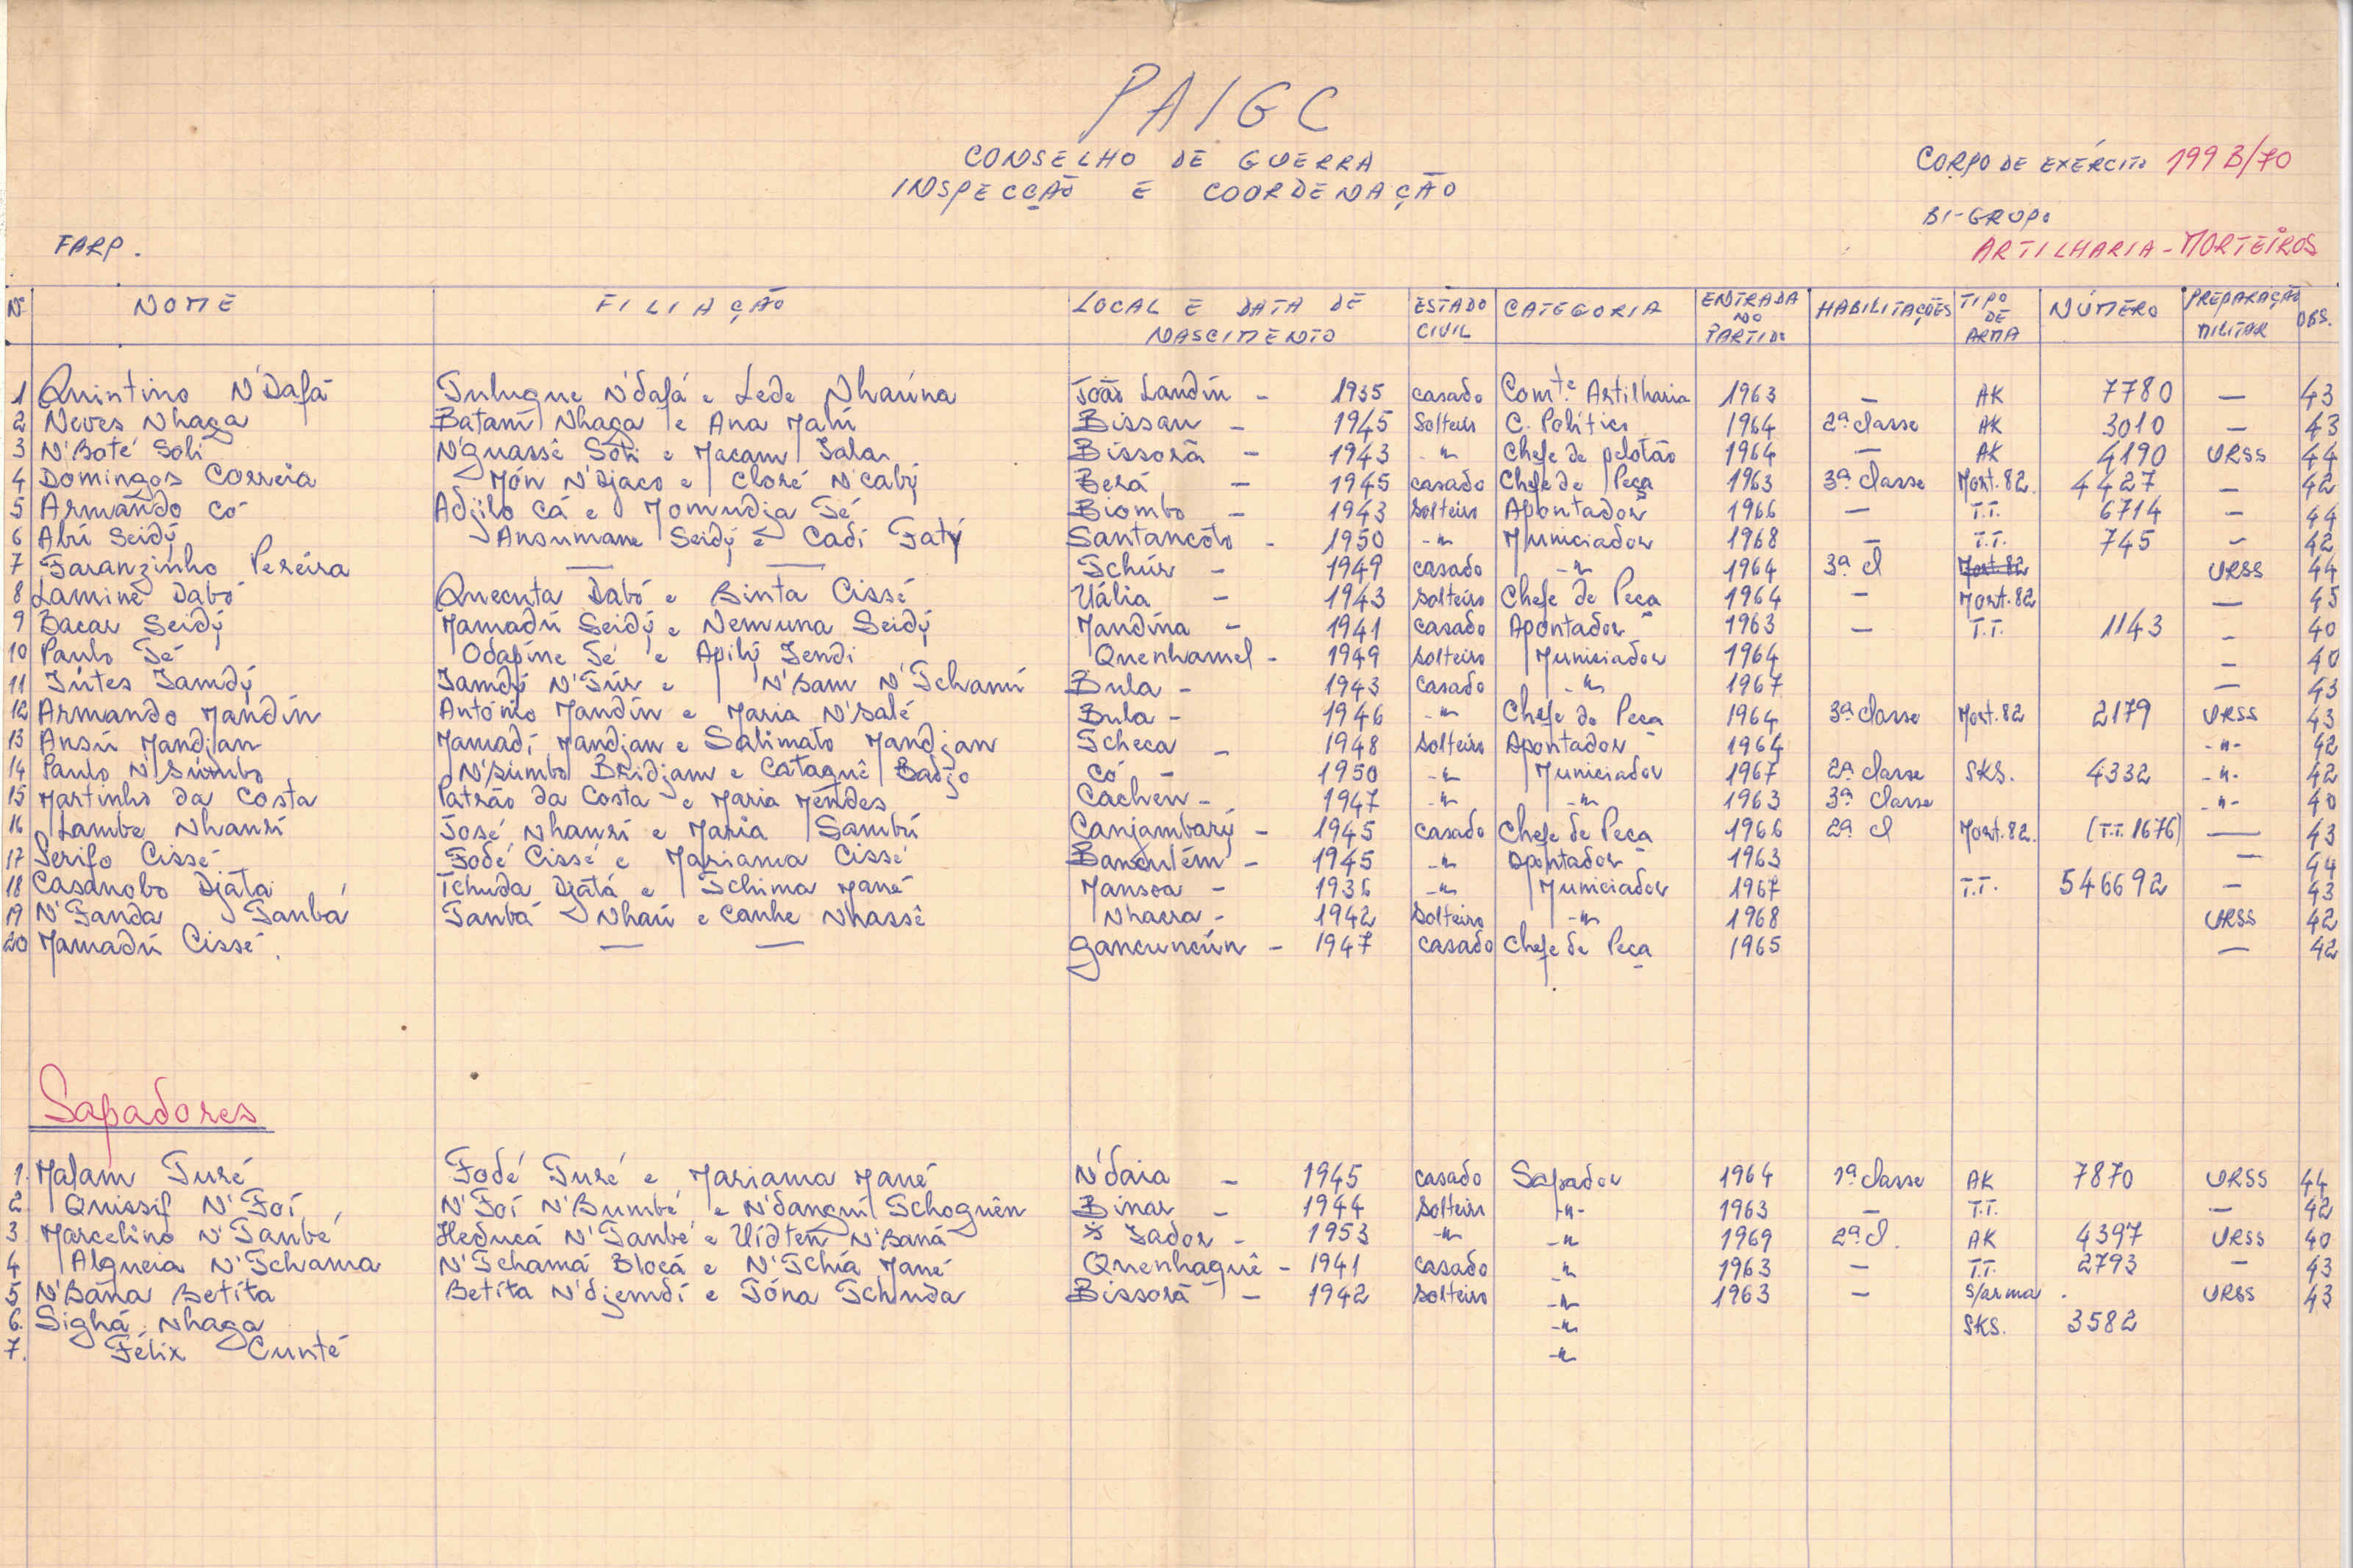 PAIGC
CONSELHO DE GUERRA
INSPECÇÃO E COORDENAÇÃO
CORPO DE EXÉRCITO 199 B/70
BI-GRUPO
ARTILHARIA - MORTEIROS
FARP.
Nº NOME FILIAÇÃO LOCAL E DATA DE NASCIMENTO ESTADO CIVIL CATEGORIA ENTRADA NO PARTIDO HABILITAÇÕES TIPO DE ARMA NÚMERO PREPARAÇÃO MILITAR OBS.
1 Quintino N'Dafá Tulugue N'dafá e Lede Nhaúna João Landín - 1935 casado Comte. Artilharia 1963 — AK 7780 — 43
2 Neves Nhaga Batam Nhaga e Ana Mani Bissau - 1945 Solteiro C. Político 1964 2ª classe AK 3010 — 43
3 N'Baté Soli N'guassê Soli e Macam Sala Bissorã - 1943 -"- Chefe de pelotão 1964 — AK 4190 URSS 44
4 Domingos Correia Món N'Djaco e Cloré N'caby Berá - 1945 casado Chefe de Peça 1963 3ª classe Mort. 82. 4427 — 42
5 Armando Có Adjilo Cá e Momudja Té Biombo - 1943 Solteiro Apontador 1966 — T.T. 6714 — 44
6 Abú Seidy Ansumane Seidy e Cadi Faty Santancóto - 1950 -"- Municiador 1968 — T.T. 745 — 42
7 Faranzinho Peréira — — Tchúr - 1949 casado -"- 1964 3ª cl Mort. 82 URSS 44
8 Lamine Dabó Quecuta Dabó e Binta Cissé Uália - 1943 Solteiro Chefe de Peça 1964 - Mort. 82 — 45
9 Bacar Seidy Mamadú Seidy e Nemuna Seidy Mandina - 1941 casado Apontador 1963 — T.T. 1143 - 40
10 Paulo Té Odafine Té e Apily Sendi Quenhamel - 1949 Solteiro Municiador 1964 - 40
11 Intes Samdy Samdy N'Túr e N'Bam N'Tchamú Bula - 1943 casado -"- 1967 — 43
12 Armando Mandin António Mandin e Maria N'Salé Bula - 1946 -"- Chefe de Peça 1964 3ª classe Mort. 82 2179 URSS 43
13 Ansú Mandjan Mamadí Mandjan e Salimato Mandjan Tcheca - 1948 Solteiro Apontador 1964 -"- 42
14 Paulo N'Súmbo N'Súmbo Bridjam e Cataguê Badjo Có - 1950 -"- Municiador 1967 2ª classe SKS. 4332 -"- 42
15 Martinho da Costa Patrão da Costa e Maria Mendes Cacheu - 1947 -"- -"- 1963 3ª classe -"- 40
16 Lambe Nhanrí José Nhanrí e Maria Sambú Canjambary - 1945 casado Chefe de Peça 1966 2ª cl Mort. 82. (T.T. 1676) — 43
17 Serifo Cissé Fodé Cissé e Mariama Cissé Banculém - 1945 -"- Apontador 1963 — 44
18 Casanobo Djata Tchuda Djatá e Tchima Mané Mansoa - 1936 -"- Municiador 1967 T.T. 546692 — 43
19 N'Fanda Tanbá Tanbá Nhaú e Canhe Nhassê Nhacra - 1942 Solteiro -"- 1968 URSS 42
20 Mamadú Cissé. — — Gancuncún - 1947 casado Chefe de Peça 1965 — 42
Sapadores
1. Malam Turé Fodé Turé e Mariama Mané N'daia - 1945 casado Sapador 1964 1ª classe AK 7870 URSS 44
2. Quissif N'Foí N'Foí N'Bumbé e N'danguí Tchoguên Binar - 1944 Solteiro -"- 1963 — T.T. — 42
3 Marcelino N'Tanbé Heducá N'Tanbé e Uídten N'Baná Jador - 1953 -"- -"- 1969 2ª cl. AK 4397 URSS 40
4 Algueia N'Tchama N'Tchamá Blocá e N'Tchía Mané Quenhaguê - 1941 casado -"- 1963 — T.T. 2793 — 43
5 N'Bana Betíta Betíta N'djemdí e Tóna Tchuda Bissorã - 1942 Solteiro -"- 1963 — S/arma . URSS 43
6. Sighá Nhaga -"- SKS. 3582
7. Félix Cunté -"-